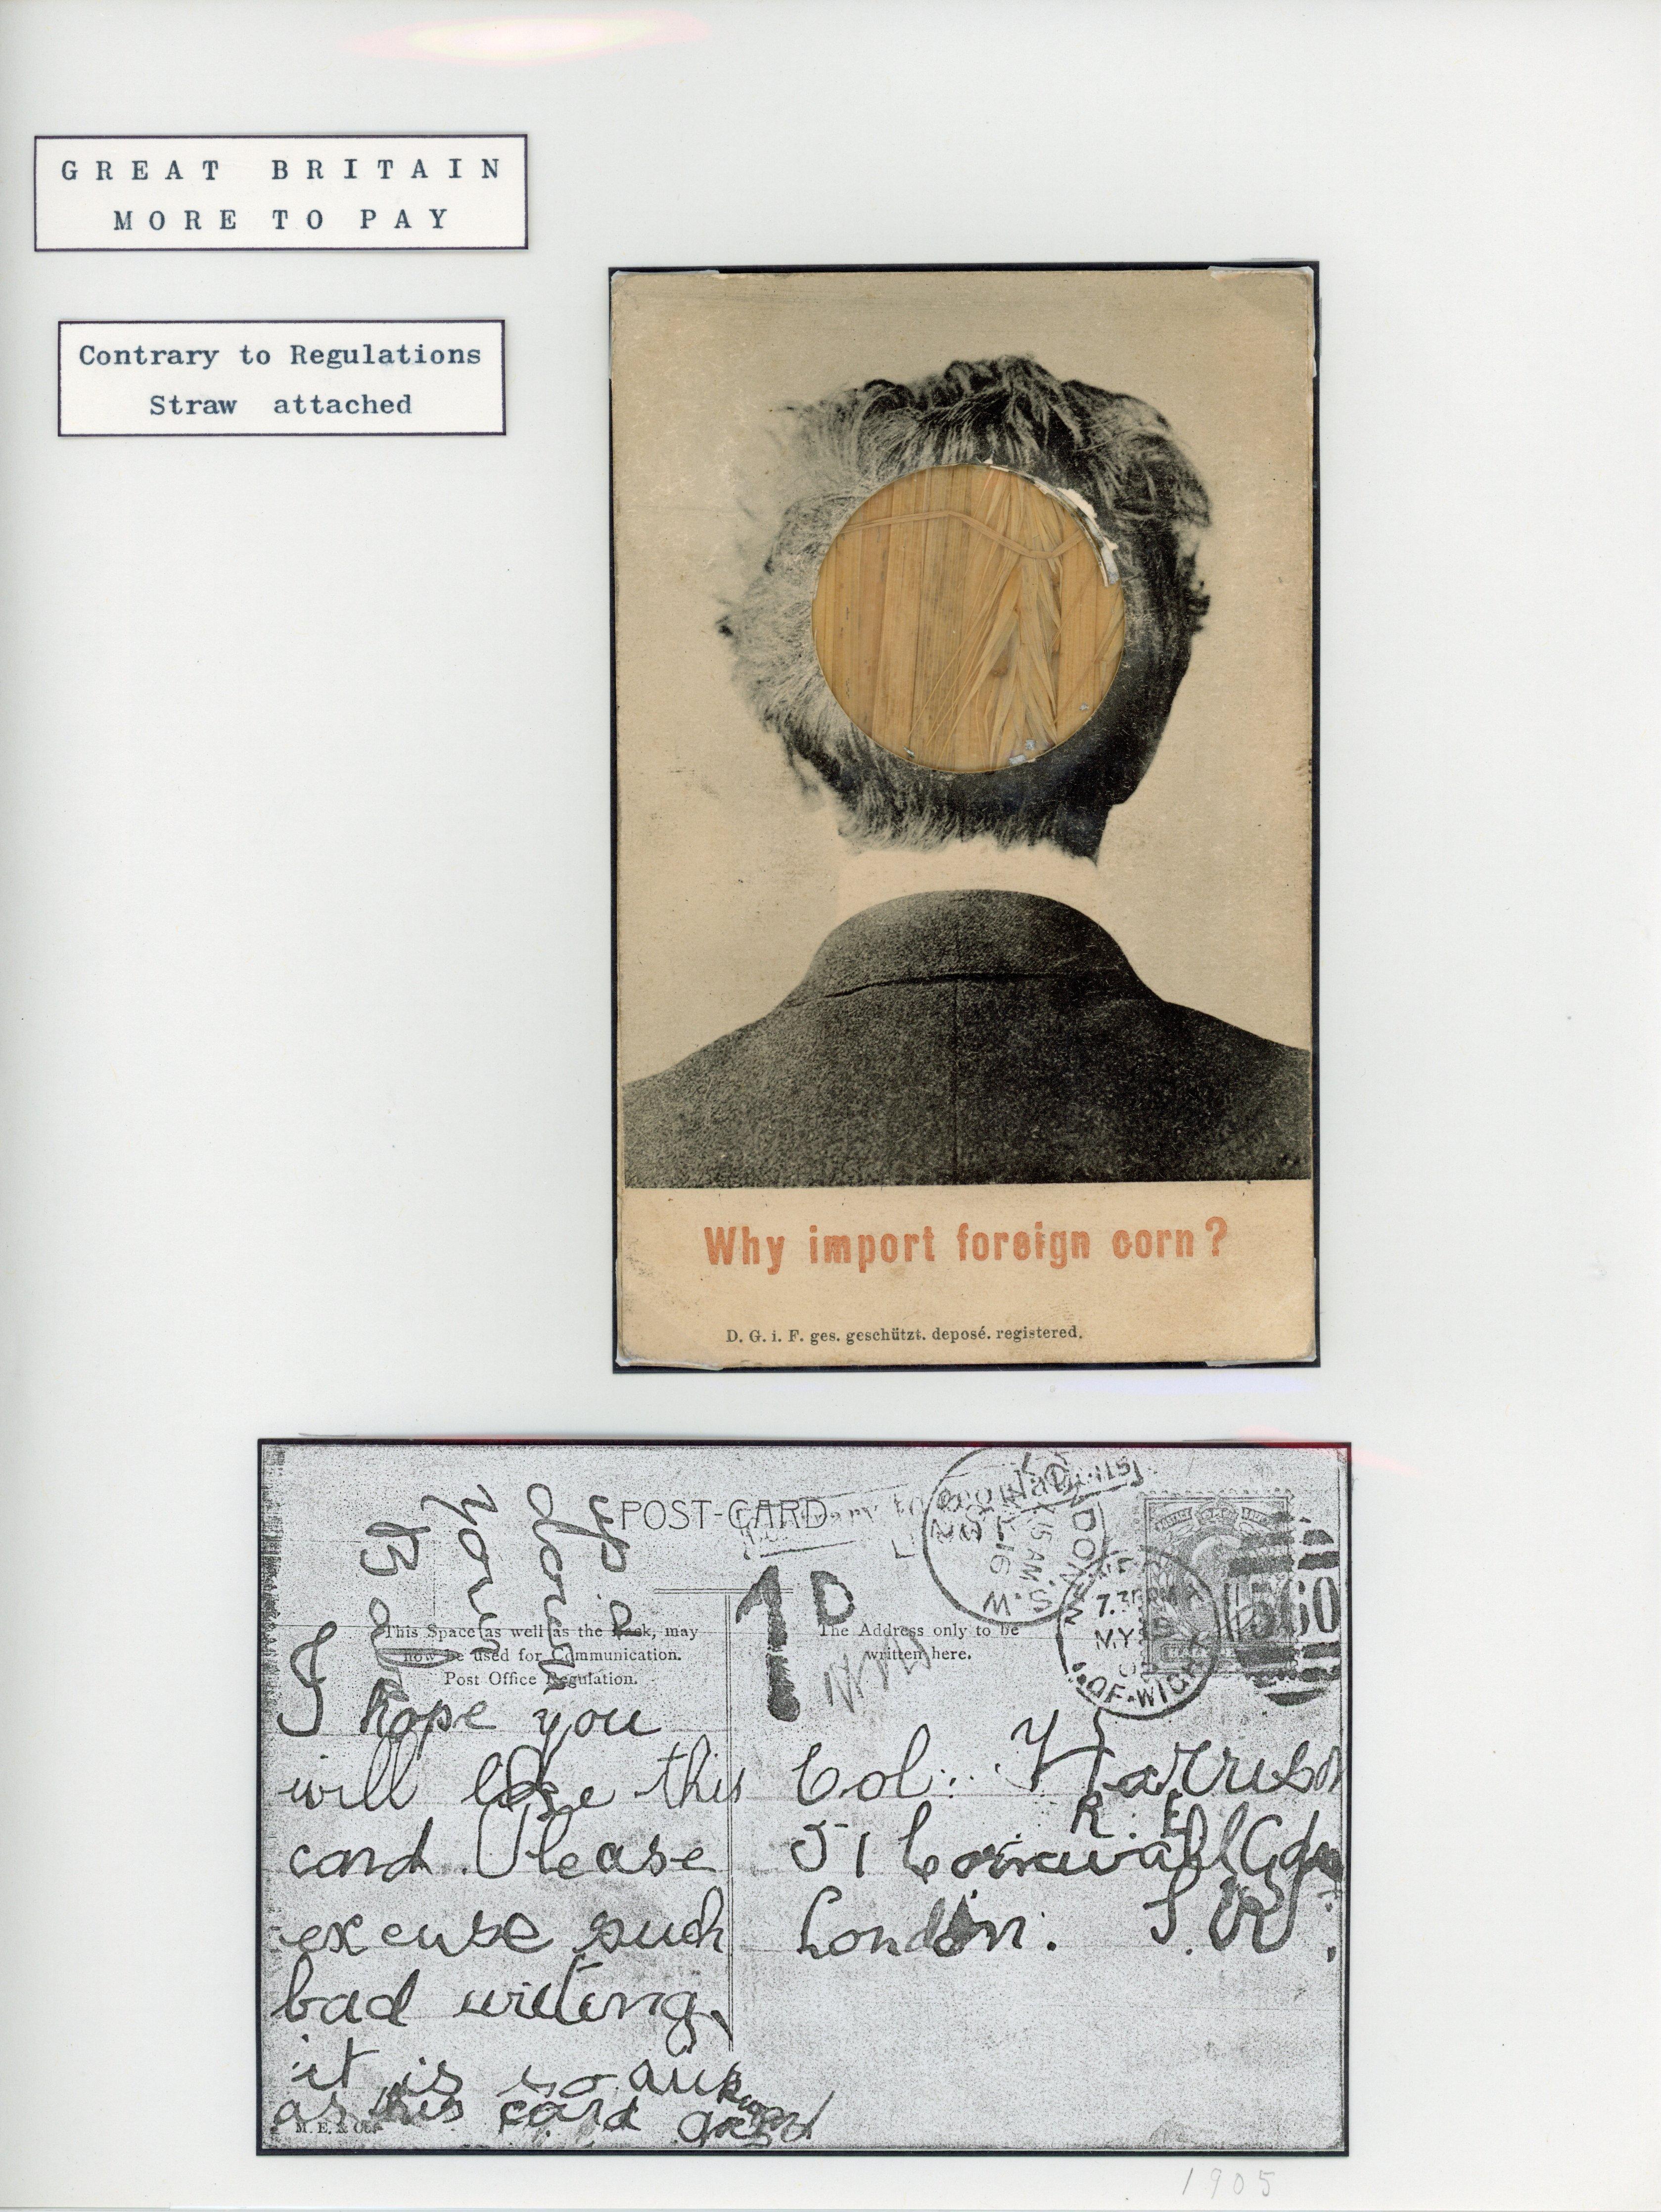 GREAT BRITAIN
MORE TO PAY
Contrary to Regulations
Straw attached
Why import foreign corn?
D. G. i. F. ges. geschützt. deposé. registered.
POST-CARD
1D
This Space as well as the Back, may
now be used for Communication.
Post Office Regulation.
The Address only to be
written here.
I hope you
will like this
card. Please
excuse such
bad writing,
it is so aukward
as this card
Col: Harrison
R. E.
51 Cornwall Gdns
London. S. W.
7.30 PM
MY
OF-WIGHT
560
15 AM
S.W.
M. E. & Co.
1905